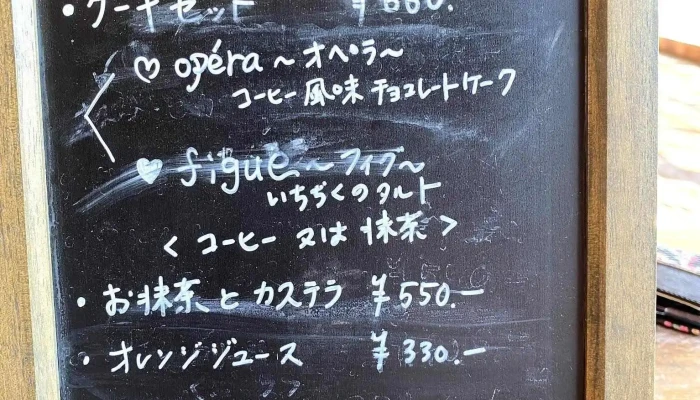 ・ケーキセット ¥660.
♡ opéra ~オペラ~
コーヒー風味チョコレートケーク
♥ figue ~フィグ~
いちぢくのタルト
< コーヒー 又は 抹茶 >
・お抹茶とカステラ ¥550.-
・オレンジジュース ¥330.-